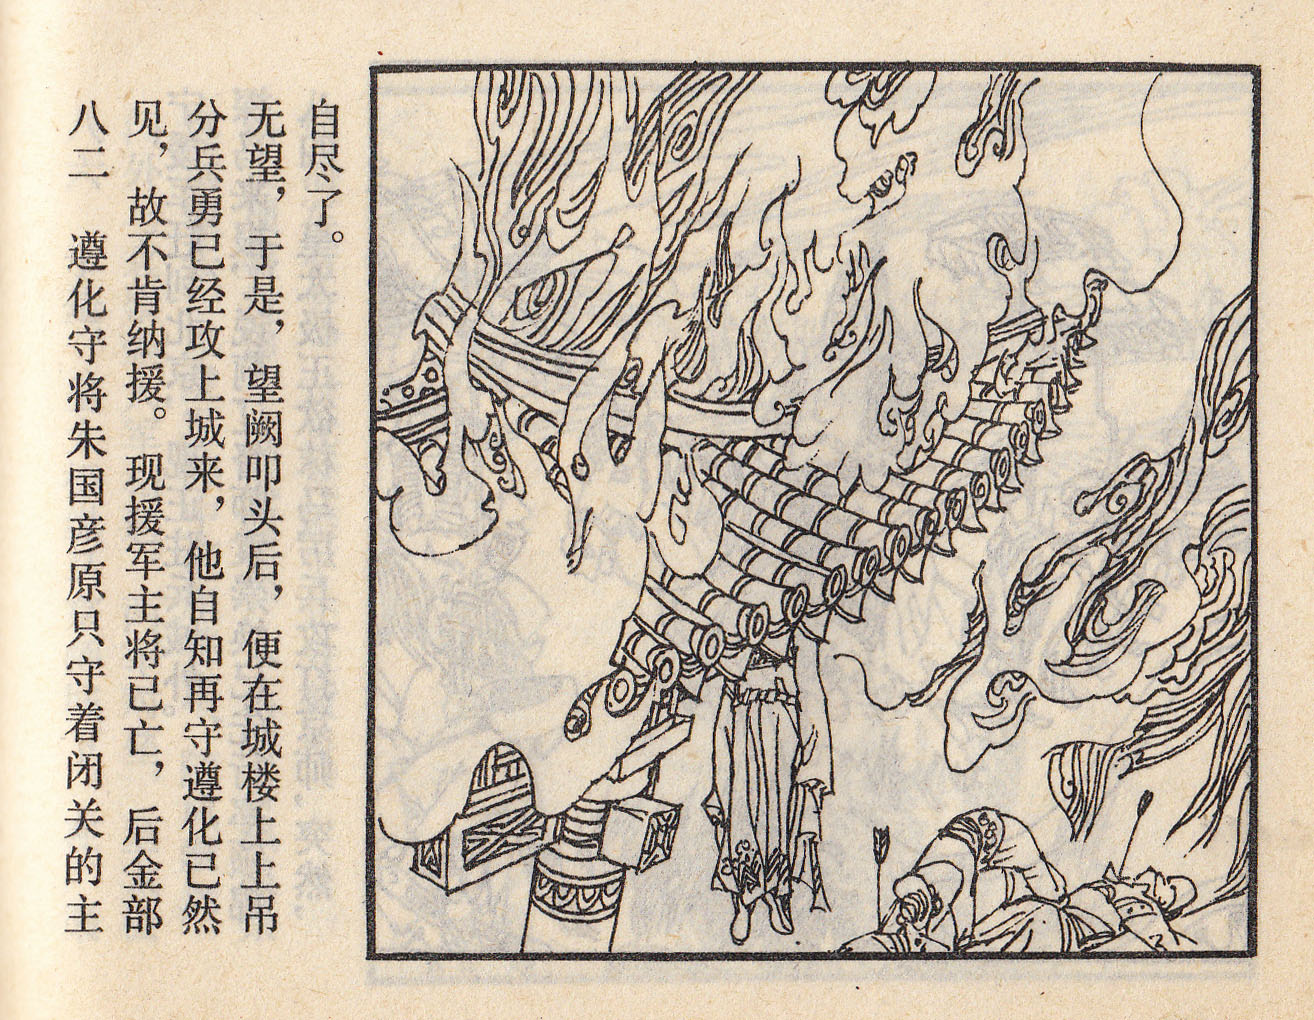 八二　遵化守将朱国彦原只守着闭关的主
见，故不肯纳援。现援军主将已亡，后金部
分兵勇已经攻上城来，他自知再守遵化已然
无望，于是，望阙叩头后，便在城楼上上吊
自尽了。